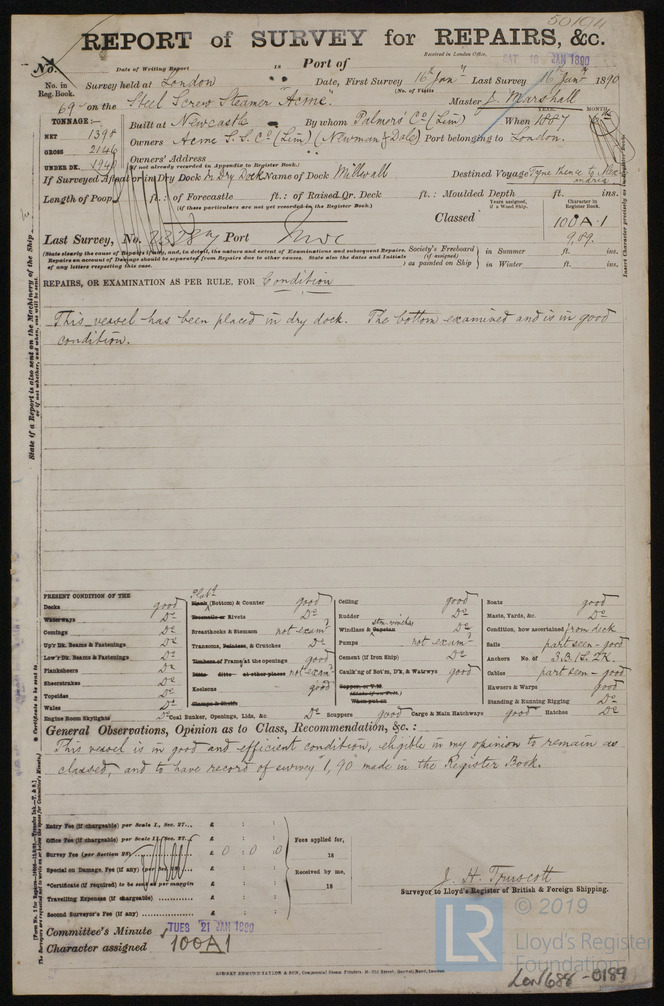 50104
REPORT of SURVEY for REPAIRS, &c.
Received in London Office,
SAT 18 JAN 1890
No. Date of Writing Report 18 Port of
No. in Reg. Book. Survey held at London Date, First Survey 16th Jany Last Survey 16th Jany 1890
(No. of Visits
69 on the Steel Screw Steamer "Acme." Master J. Marshall
TONNAGE:—
NET 1398
GROSS 2146
UNDER DK. 1940
Built at Newcastle By whom Palmers Co (Lim) When YEAR. 1887 MONTH.
Owners Acme S.S. Co (Lim) (Newman & Dale) Port belonging to London.
Owners' Address
(if not already recorded in Appendix to Register Book.)
If Surveyed Afloat or in Dry Dock In Dry Dock Name of Dock Millwall Destined Voyage Tyne thence to Alexandria
Length of Poop ft.: of Forecastle ft.: of Raised Qr. Deck ft.: Moulded Depth ft. ins.
(if these particulars are not yet recorded in the Register Book.)
Years assigned, if a Wood Ship.
Character in Register Book.
Classed 100A·1
9,89.
Last Survey, No. Port Nwc
(State clearly the cause of Repairs if any, and, in detail, the nature and extent of Examinations and subsequent Repairs. Repairs on account of Damage should be separated from Repairs due to other causes. State also the dates and Initials of any letters respecting this case.
Society's Freeboard (if assigned) as painted on Ship
in Summer ft. ins.
in Winter ft. ins.
Insert Character precisely as in Register Book.
REPAIRS, OR EXAMINATION AS PER RULE, FOR Condition
This vessel has been placed in dry dock. The bottom examined and is in good
condition.
State if a Report is also sent on the Machinery of the Ship
or if not, whether, and when, one will be sent.
Certificate to be sent to
PRESENT CONDITION OF THE
Decks good
Waterways Do
Comings Do
Up'r Dk. Beams & Fastenings Do
Low'r Dk. Beams & Fastenings Do
Planksheers Do
Sheerstrakes Do
Topsides Do
Wales Do
Engine Room Skylights Do
Plank (Bottom) & Counter good
Treenails or Rivets Do
Breasthooks & Stemson not examd
Transoms, Pointers, & Crutches Do
Timbers of Frame at the openings good
Ditto ditto at other places not examd
Keelsons good
Clamps & Shelfs
Coal Bunker, Openings, Lids, &c. Do
Ceiling good
Rudder Do
Windlass & Capstan stm. winches Do
Pumps not examd
Cement (if Iron Ship) Do
Caulk'ng of Bot'm, D'k, & Watrwys good
Copper, or Y.M.
(State if on Felt.)
When put on
Scuppers good Cargo & Main Hatchways good
Boats good
Masts, Yards, &c. Do
Condition, how ascertained from deck
Sails part seen - good
Anchors No. of 3.B. 1 St. 2K.
Cables part seen - good
Hawsers & Warps good
Standing & Running Rigging Do
Hatches Do
General Observations, Opinion as to Class, Recommendation, &c. :
This vessel is in good and efficient condition, eligible in my opinion to remain as
classed, and to have record of survey 1,90 made in the Register Book.
Entry Fee (if chargeable) per Scale I., Sec. 27... £ : :
Office Fee (if chargeable) per Scale II., Sec. 27... £ : :
Survey Fee (per Section 28) £ 0 : 0 : 0
Special on Damage, Fee (if any) (per Sec. 28) £ : :
*Certificate (if required) to be sent as per margin £ : :
Travelling Expenses (if chargeable) £ : :
Second Surveyor's Fee (if any) £ : :
Fees applied for,
18
Received by me,
18
J. H. Truscott
Surveyor to Lloyd's Register of British & Foreign Shipping.
Committee's Minute TUES 21 JAN 1890
Character assigned 100A1
LR
© 2019
Lloyd's Register
Foundation
Lon688-0189